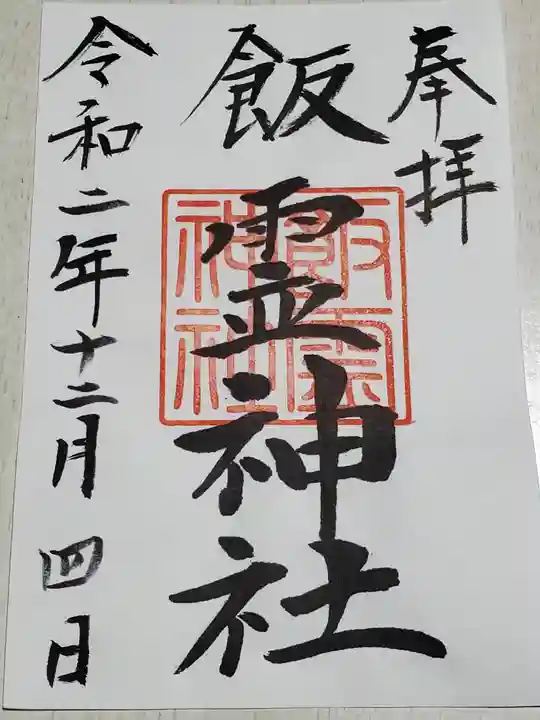 奉拝
飯霊神社
飯霊
神社
令和二年十二月四日